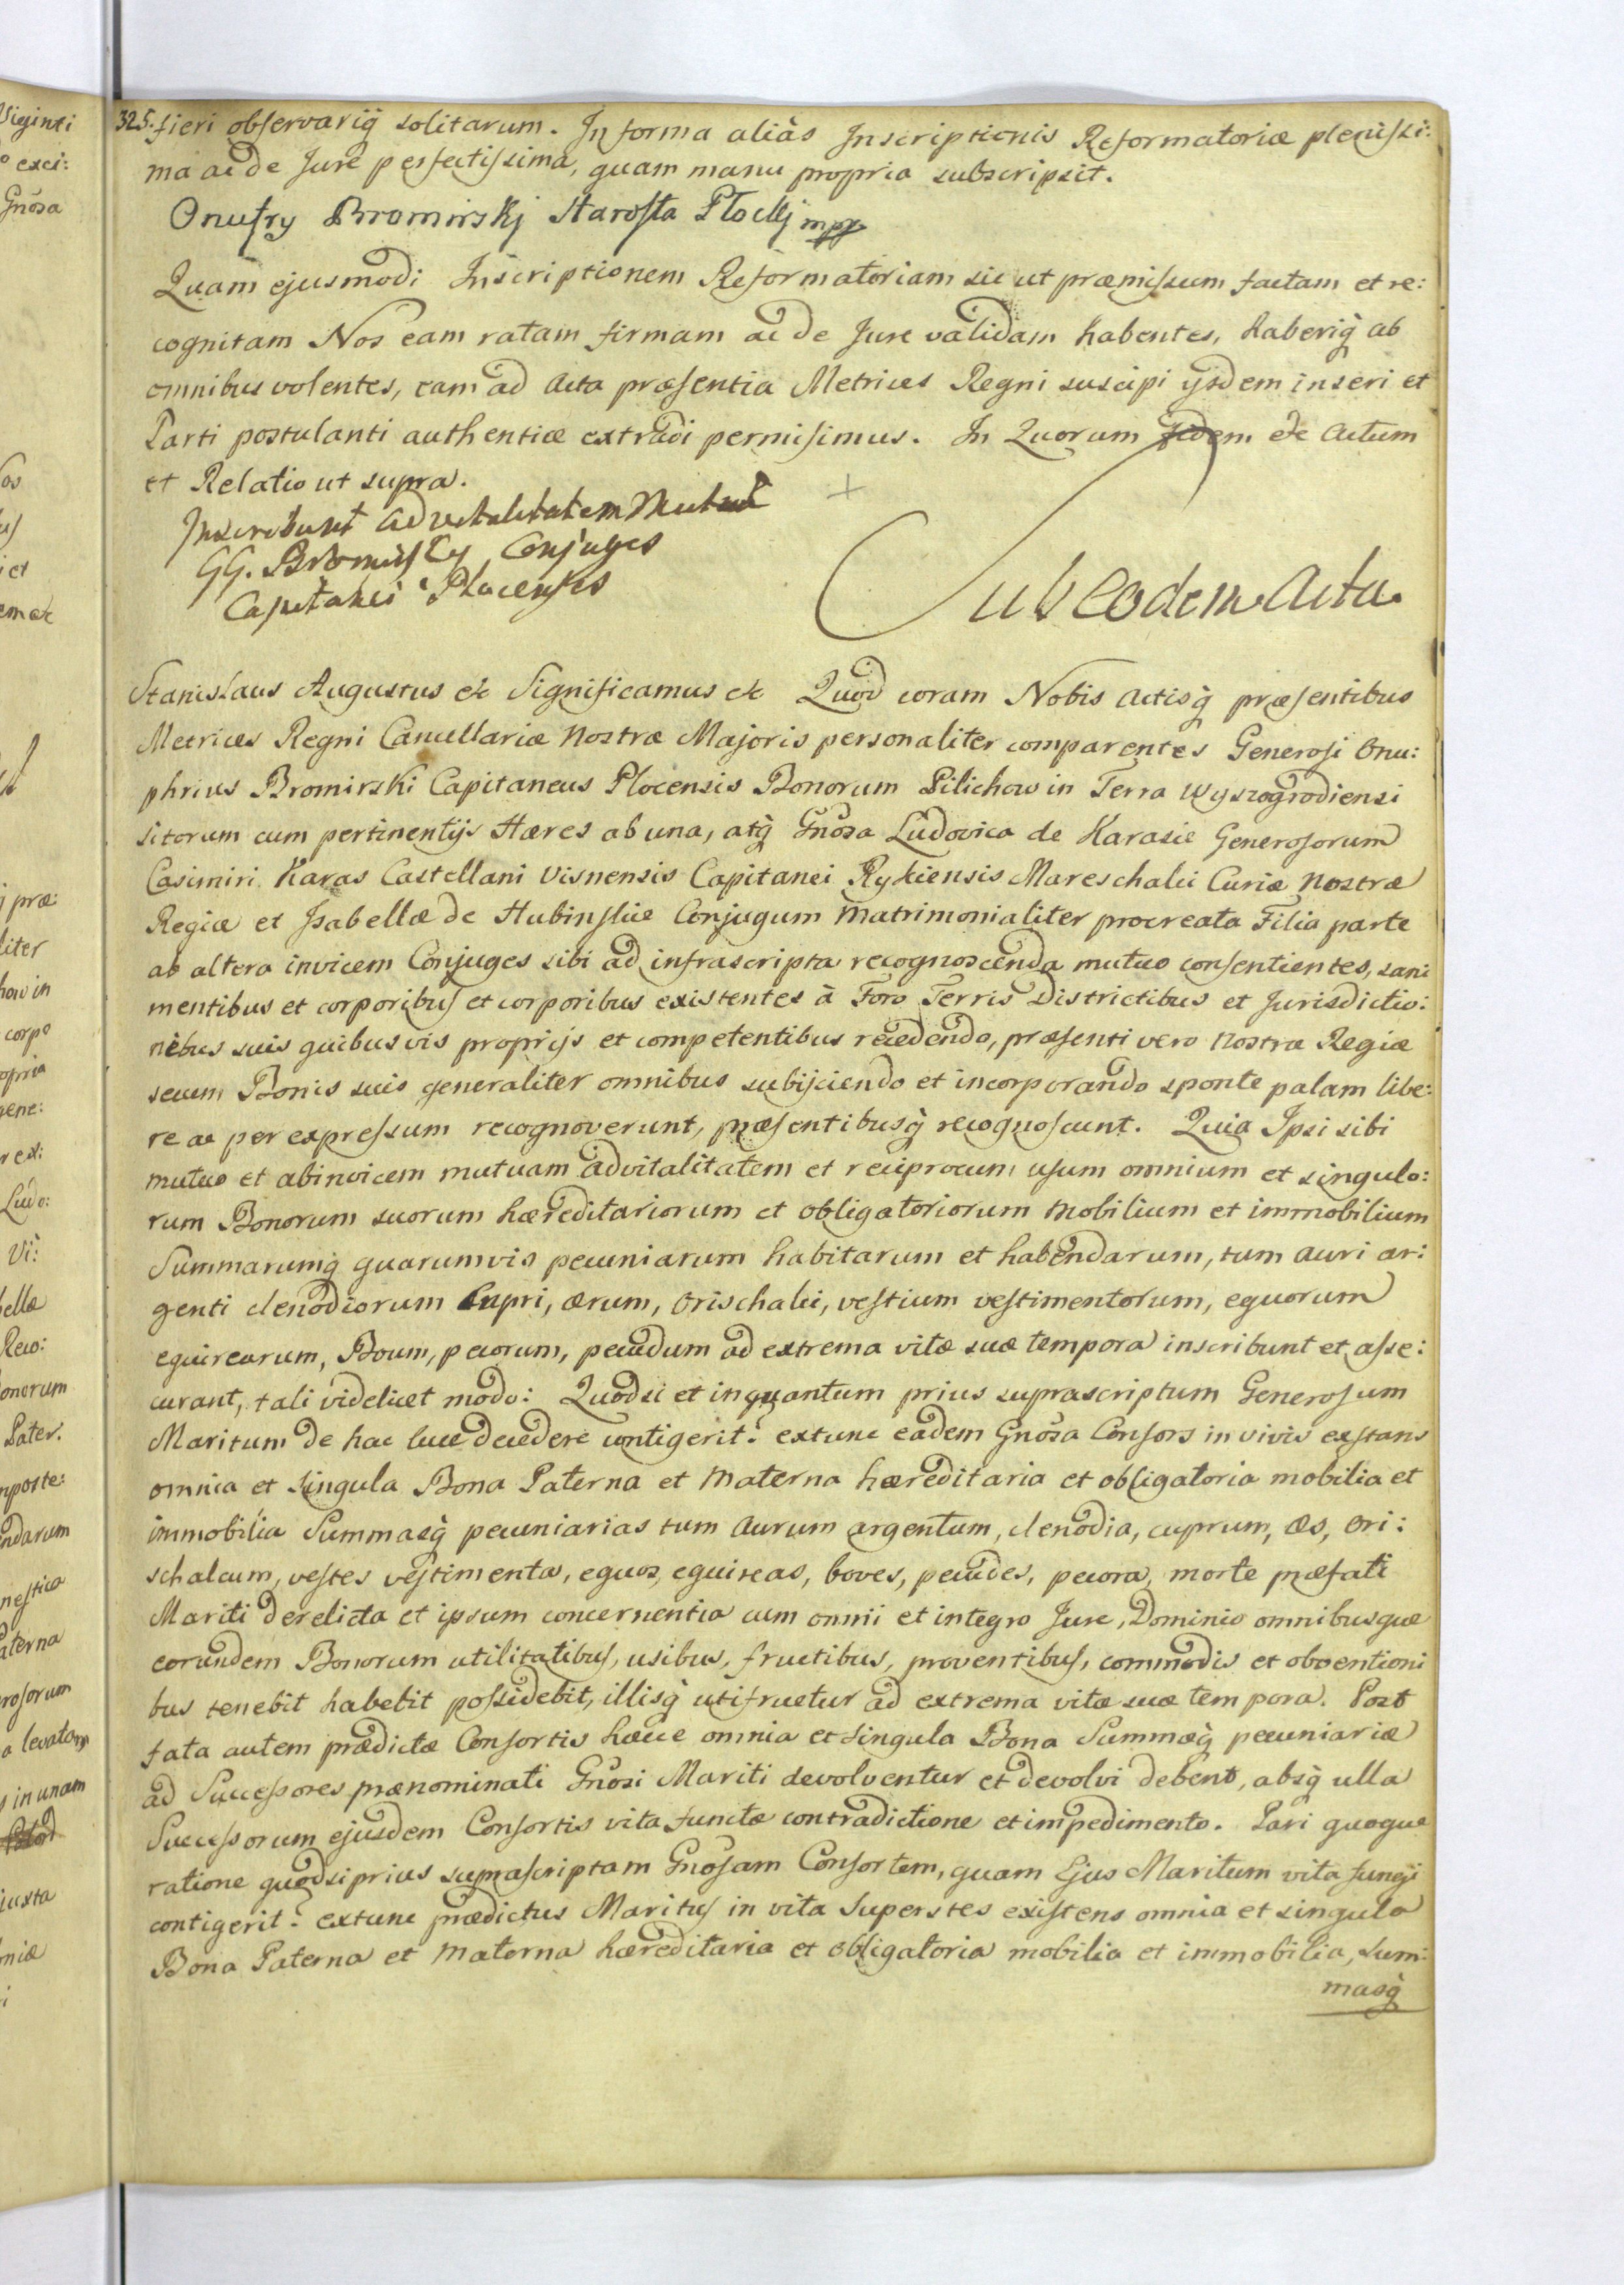 Viginti
exci:
Gnosa
os
emet
præ:
liter
how in
corpo
opria
gene:
r ex:
Ludo:
Vi:
bellæ
Reco:
onorum
Pater.
mporte:
ndarum
nestica
aterna
rosorum
a levatam
in unam
juxta
oniæ
325. fieri observariq̃ solitarum. In forma aliàs Inscriptionis Reformatoriæ plenissi:
ma ac de Jure perfectissima, quam manu propria subscripsit.
Onufry Bromirskj Starosta Płockj mpp
Quam ejusmodi Inscriptionem Reformatoriam sic ut præmissum factam et re:
cognitam Nos eam ratam firmam ac de Jure validam habentes, haberiq̃ ab
omnibus volentes, eam ad Acta præsentia Metrices Regni suscipi ijsdem inseri et
Parti postulanti authentice extradi permisimus. In Quorum fidem etc Actum
et Relatio ut supra.
Inscribunt advitalitatem Mutuã
GG. Bromirscy Conjuges
Capitanei Plocenses
Sub Eodem Actu.
Stanislaus Augustus etc Significamus etc Quod coram Nobis Actisq̃ præsentibus
Metrices Regni Cancellariæ Nostræ Majoris personaliter comparentes Generosi Onu:
phrius Bromirski Capitaneus Plocensis Bonorum Pilichow in Terra Wyszogrodiensi
sitorum cum pertinentijs Hæres ab una, atq̃ Gnosa Ludovica de Karasie Generosorum
Casimiri Karas Castellani Visnensis Capitanei Rykiensis Mareschalci Curiæ Nostræ
Regiæ et Isabellæ de Hubinskie Conjugum Matrimonialiter procreata Filia parte
ab altera invicem Conjuges sibi ad infrascripta recognoscenda mutuo consentientes, sani
mentibus et corporibus et corporibus existentes à Foro Terris Districtibus et Jurisdictio:
nibus suis quibusvis proprijs et competentibus recedendo, præsenti vero Nostræ Regiæ
secum Bonis suis generaliter omnibus subijciendo et incorporando sponte palam libe:
re ac per expressum recognoverunt, præsentibusq̃ recognoscunt. Quia Ipsi sibi
mutuo et abinvicem mutuam advitalitatem et reciprocum usum omnium et singulo:
rum Bonorum suorum hæreditariorum et obligatoriorum mobilium et immobilium
Summarumq̃ quarumvis pecuniarum habitarum et habendarum, tum auri ar:
genti clenodiorum Cupri, ærum, Orischalci, vestium vestimentorum, equorum
equirearum, Boum, pecorum, pecudum ad extrema vitæ suæ tempora inscribunt et asse:
curant, tali videlicet modo: Quodsi et inquantum prius suprascriptum Generosum
Maritum de hac luce decedere contigerit: extunc eadem Gnosa Consors in vivis exstans
omnia et singula Bona Paterna et Materna hæreditaria et obligatoria mobilia et
immobilia Summasq̃ pecuniarias tum Aurum argentum, clenodia, cuprum, æs, Ori:
schalcum, vestes vestimenta, equos, equireas, boves, pecudes, pecora, morte præfati
Mariti derelicta et ipsum concernentia cum omni et integro Jure, Dominio omnibusque
eorundem Bonorum utilitatibus, usibus, fructibus, proventibus, commodis et obventioni
bus tenebit habebit possidebit, illisq̃ utifruetur ad extrema vitæ suæ tempora. Post
fata autem prædictæ Consortis hæcce omnia et singula Bona Summæq̃ pecuniariæ
ad Successores prænominati Gnosi Mariti devolventur et devolvi debent, absq̃ ulla
Successorum ejusdem Consortis vita functæ contradictione et impedimento. Pari quoque
ratione quodsi prius suprascriptam Gnosam Consortem, quam Ejus Maritum vita fungi
contigerit: extunc prædictus Maritus in vita Superstes existens omnia et singula
Bona Paterna et Materna hæreditaria et obligatoria mobilia et immobilia, Sum:
masq̃